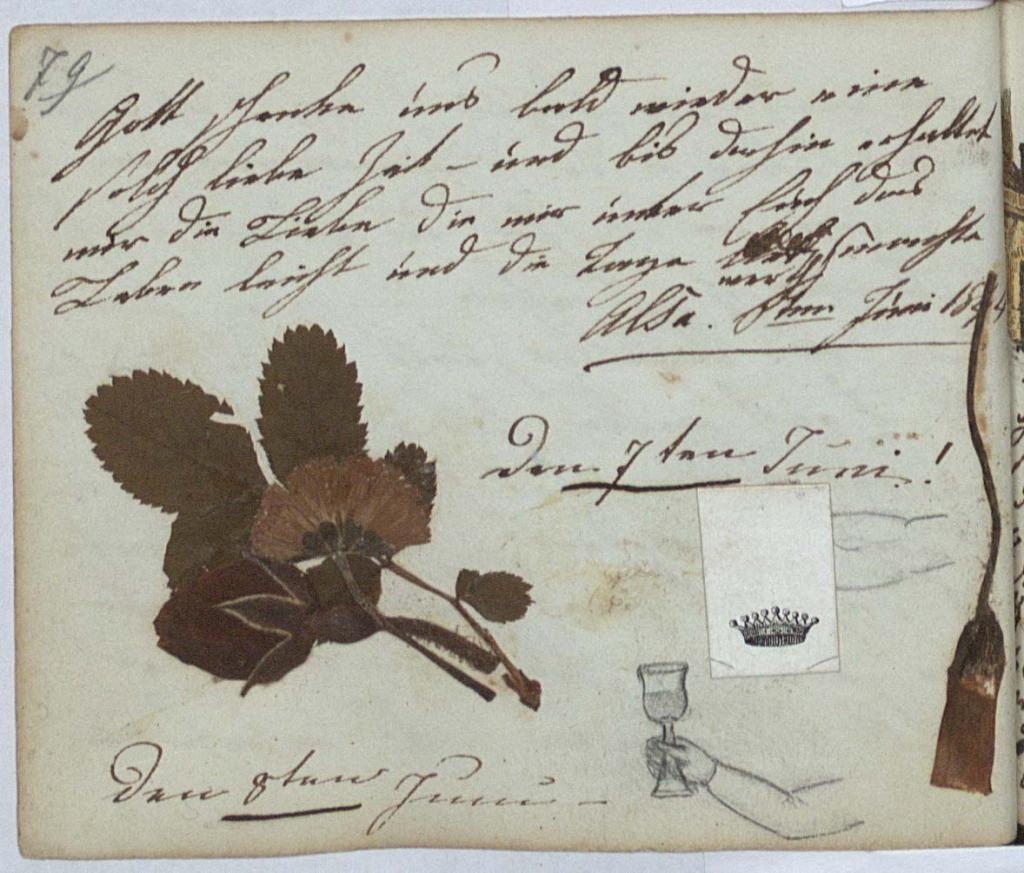 79
Gott schenke uns bald wieder eine
solch liebe Zeit – und bis dahin erhaltet
mir die Liebe die mir unter Euch das
Leben leicht und die Tage werth machte
Alsa. 8ten Juni 184
den 7ten Juni!
den 8ten Juni –